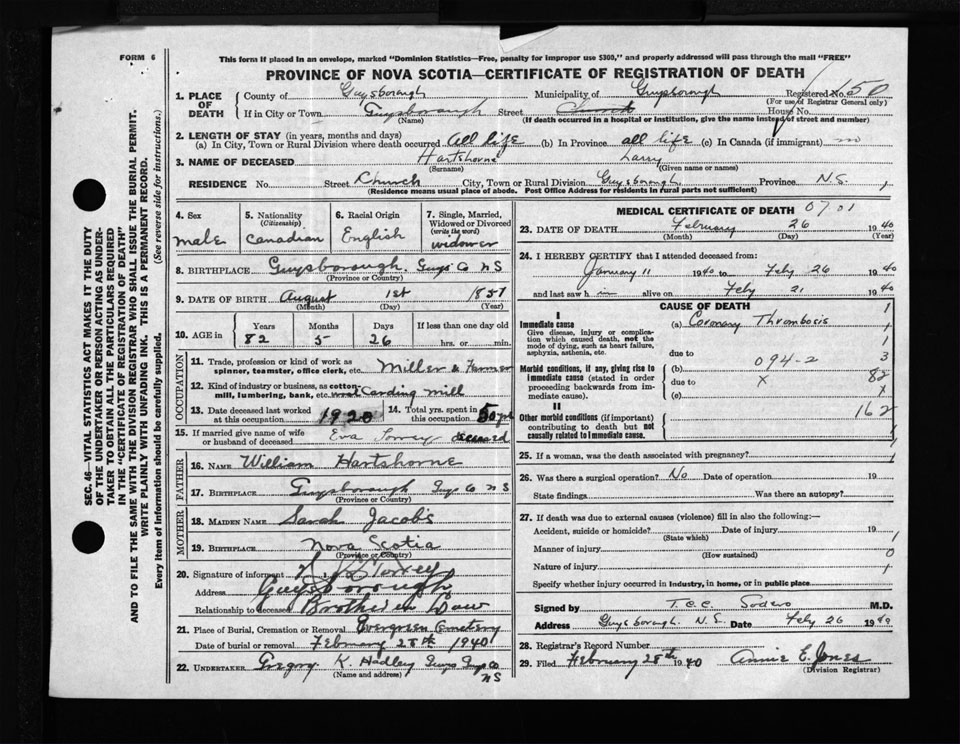 FORM 6
This form if placed in an envelope, marked "Dominion Statistics—Free, penalty for improper use $300," and properly addressed will pass through the mail "FREE"
PROVINCE OF NOVA SCOTIA—CERTIFICATE OF REGISTRATION OF DEATH
1. PLACE OF DEATH
County of Guysborough Municipality of Guysborough Registered No. 50
(For use of Registrar General only)
If in City or Town Guysborough Street Church House No.
(Name) (If death occurred in a hospital or institution, give the name instead of street and number)
2. LENGTH OF STAY (in years, months and days)
(a) In City, Town or Rural Division where death occurred All life (b) In Province all life (c) In Canada (if immigrant)
3. NAME OF DECEASED Hartshorne Larry
(Surname) (Given name or names)
RESIDENCE No. Street Church City, Town or Rural Division Guysborough Province N.S.
(Residence means usual place of abode. Post Office Address for residents in rural parts not sufficient)
4. Sex
male
5. Nationality
(Citizenship)
Canadian
6. Racial Origin
English
7. Single, Married, Widowed or Divorced
(write the word)
widower
8. BIRTHPLACE Guysborough, Guys Co N S
(Province or Country)
9. DATE OF BIRTH August 1st 1857
(Month) (Day) (Year)
10. AGE in
Years Months Days If less than one day old
82 5 26 hrs. or min.
OCCUPATION
11. Trade, profession or kind of work as spinner, teamster, office clerk, etc. Miller & Farmer
12. Kind of industry or business, as cotton-mill, lumbering, bank, etc. Carding mill
13. Date deceased last worked at this occupation 1920
14. Total yrs. spent in this occupation 50
15. If married give name of wife or husband of deceased Eva deceased
FATHER
16. NAME William Hartshorne
17. BIRTHPLACE Guysborough Guys Co N S
(Province or Country)
MOTHER
18. MAIDEN NAME Sarah Jacobs
19. BIRTHPLACE Nova Scotia
(Province or Country)
20. Signature of informant
Address Guysborough
Relationship to deceased Brother in Law
21. Place of Burial, Cremation or Removal Evergreen Cemetery
Date of burial or removal February 28th 1940
22. UNDERTAKER Gregory K. Hadley Guys Guys Co
NS
(Name and address)
MEDICAL CERTIFICATE OF DEATH 0701
23. DATE OF DEATH February 26 1940
(Month) (Day) (Year)
24. I HEREBY CERTIFY that I attended deceased from:
January 11 1940 to Feby 26 1940
and last saw him alive on Feby 21 1940
CAUSE OF DEATH
I
Immediate cause
Give disease, injury or complication which caused death, not the mode of dying, such as heart failure, asphyxia, asthenia, etc.
(a) Coronary Thrombosis
due to
Morbid conditions, if any, giving rise to immediate cause (stated in order proceeding backwards from immediate cause).
(b) 094-2
due to x
(c)
II
Other morbid conditions (if important) contributing to death but not causally related to immediate cause.
1
1
1
3
82
x
162
1
25. If a woman, was the death associated with pregnancy?
26. Was there a surgical operation? No Date of operation 19
State findings Was there an autopsy?
27. If death was due to external causes (violence) fill in also the following:—
Accident, suicide or homicide? Date of injury 19
(State which)
Manner of injury
(How sustained)
Nature of injury
Specify whether injury occurred in industry, in home, or in public place
Signed by T.C.C. Sodero M.D.
Address Guysborough. N.S. Date Feby 26 1940
28. Registrar's Record Number
29. Filed February 28th 1940 Annie E. Jones
(Division Registrar)
SEC. 46—VITAL STATISTICS ACT MAKES IT THE DUTY
OF THE UNDERTAKER OR PERSON ACTING AS UNDER-
TAKER TO OBTAIN ALL THE PARTICULARS REQUIRED
IN THE "CERTIFICATE OF REGISTRATION OF DEATH"
AND TO FILE THE SAME WITH THE DIVISION REGISTRAR WHO SHALL ISSUE THE BURIAL PERMIT.
WRITE PLAINLY WITH UNFADING INK. THIS IS A PERMANENT RECORD.
Every item of information should be carefully supplied. (See reverse side for instructions.)